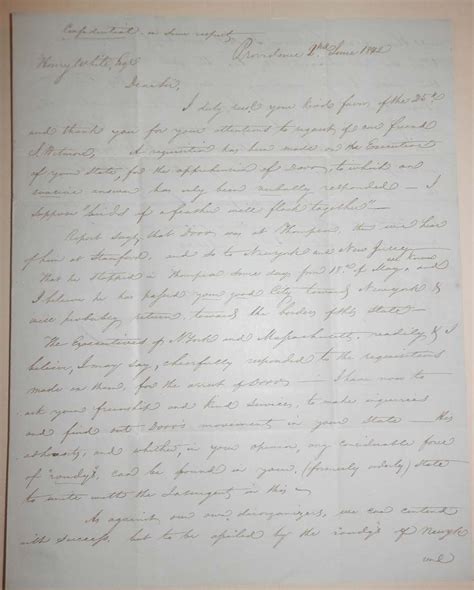 Confidential in some respect
Providence 2nd June 1842
Henry White, Esqr
Dear Sir,
I duly recd your kind favor of the 25th
and thank you for your attention to request of our friend
A requisition has been made on the Executive
of your State, for the apprehension of Dorr, to which an
evasive answer has only been verbally responded – I
suppose "birds of a feather will flock together" –
Report says, that Dorr was at Thompson, then we hear
of him at Stamford, and so to Newyork and New Jersey
That he stopped in Thompson some days from 18th of May, we know and
I believe he has passed your good City towards Newyork &
will probably return, towards the borders of this State –
The Executives of N York and Massachusetts, readily, & I
believe, I may say, cheerfully responded to the requisitions
made on them, for the arrest of Dorr – I have now to
ask your friendship and kind services, to make inquiries
and find out Dorr's movements in your State – this
and whether, in your opinion, any considerable force
of "rowdys", can be found in your, (formerly orderly) State
to unite with the Insurgents in this –
As against our own disorganizers, we can contend
with success, but to be spoiled by the "rowdys" of Newyk
and